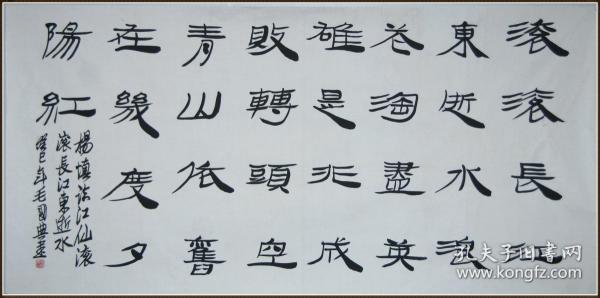 滾滾長江
東逝水浪
花淘盡英
雄是非成
敗轉頭空
青山依舊
在幾度夕
陽紅
楊慎臨江仙滾
滾長江東逝水
癸巳年毛國典書
孔夫子旧書网
www.kongfz.com